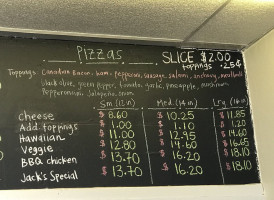 Pizzas
SLICE $2.00
toppings .25¢
Toppings: Canadian Bacon, ham, pepperoni, sausage, salami, anchovy, meatball
black olive, green pepper, tomato, garlic, pineapple, mushroom
Pepperoncini, Jalapeño, onion
Sm (10 in) Med (14 in) Lrg (16 in)
cheese $ 8.60 $ 10.25 $ 11.85
Add. toppings $ 1.00 $ 1.10 $ 1.20
Hawaiian $ 11.00 $ 12.95 $ 14.60
Veggie $ 12.80 $ 14.60 $ 16.65
BBQ chicken $ 13.70 $ 16.20 $ 18.10
Jack's Special $ 13.70 $ 16.20 $ 18.10